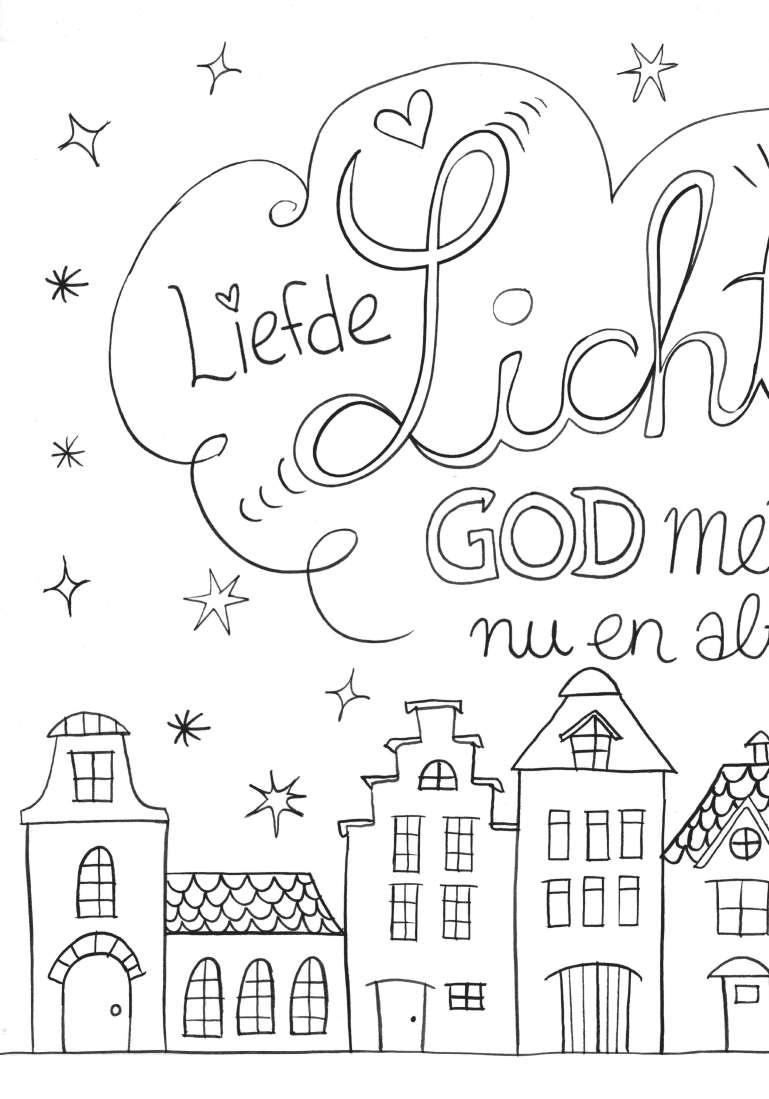 Liefde
Licht
GOD me
nu en al